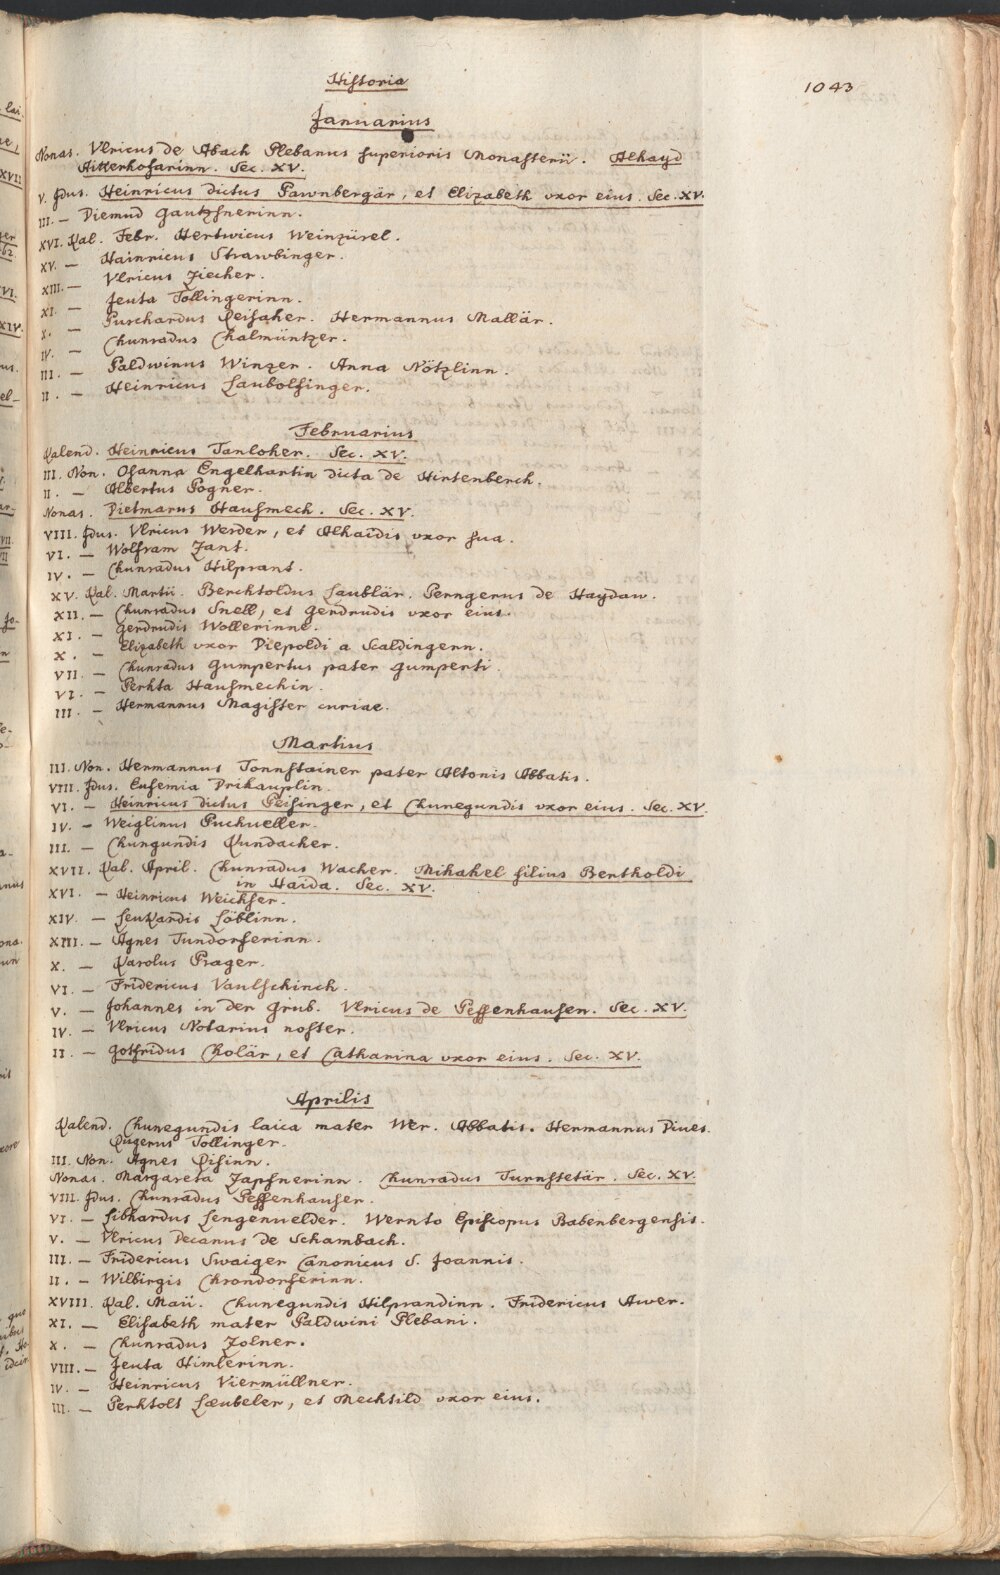 Historia
1043
Januarius
Nonas. Vlricus de Abach Plebanus superioris Monasterii. Alhayd
Aitterhofarinn. Sec. XV.
V. Jdus. Heinricus dictus Pawnbergär, et Elizabeth uxor eius. Sec. XV.
III. — Diemud Gautzsnerinn.
XVI. Kal. Febr. Hertwicus Weinzürel.
XV. — Hainricus Strawbinger.
XIII. — Vlricus Ziecher.
XI. — Jeuta Tollingerinn.
X. — Purchardus Reisaher. Hermannus Mallär.
IV. — Chunradus Chalmüntzer.
III. — Paldwinus Winzer. Anna Nötzlinn.
II. — Heinricus Laubolfinger.
Februarius
Kalend. Heinricus Tanloher. Sec. XV.
III. Non. Osanna Engelhartin dicta de Hirtenberch.
II. — Albertus Pogner.
Nonas. Dietmarus Hausmech. Sec. XV.
VIII. Jdus. Vlricus Werder, et Alhaidis uxor sua.
VI. — Wolfram Zant.
IV. — Chunradus Hilprant.
XV. Kal. Martii. Berchtoldus Laublär. Perngerus de Haydaw.
XII. — Chunradus Snell, et Gerdrudis uxor eius.
XI. — Gerdrudis Wollerinne.
X. — Elizabeth uxor Diepoldi a Scaldingenn.
VII. — Chunradus Gumpertus pater Gumperti.
VI. — Perhta Hausmechin.
III. — Hermannus Magister curiae.
Martius
III. Non. Hermannus Tonnstainer pater Altonis Abbatis.
VIII. Jdus. Eufemia Drikauplin.
VI. — Heinricus dictus Peisinger, et Chunegundis uxor eius. Sec. XV.
IV. — Weiglinus Puchueller.
III. — Chungundis Kundacher.
XVII. Kal. April. Chunradus Wacher. Mihahel filius Bertholdi
in Haida. Sec. XV.
XVI. — Heinricus Weichser.
XIV. — Leukardis Löblinn.
XIII. — Agnes Tundorferinn.
X. — Karolus Prager.
VI. — Fridericus Vaulschinch.
V. — Johannes in der Grub. Vlricus de Peffenhausen. Sec. XV.
IV. — Vlricus Notarius noster.
II. — Gotfridus Cholär, et Catharina uxor eius. Sec. XV.
Aprilis
Kalend. Chunegundis laica mater Wer. Abbatis. Hermannus Diues.
Rugerus Tollinger.
III. Non. Agnes Risinn.
Nonas. Margareta Zapfnerinn. Chunradus Turnstetär. Sec. XV.
VIII. Jdus. Chunradus Peffenhauser.
VI. — Sibhardus Lengenuelder. Wernto Episcopus Babenbergensis.
V. — Vlricus Decanus de Schambach.
III. — Fridericus Swaiger Canonicus S. Joannis.
II. — Wilbirgis Chrondorferinn.
XVIII. Kal. Maii. Chunegundis Hilprandinn. Fridericus Awer.
XI. — Elisabeth mater Paldwini Plebani.
X. — Chunradus Zolner.
VIII. — Jeuta Himlerinn.
IV. — Heinricus Viermüllner.
III. — Perhtolt Læubeler, et Mechtild uxor eius.